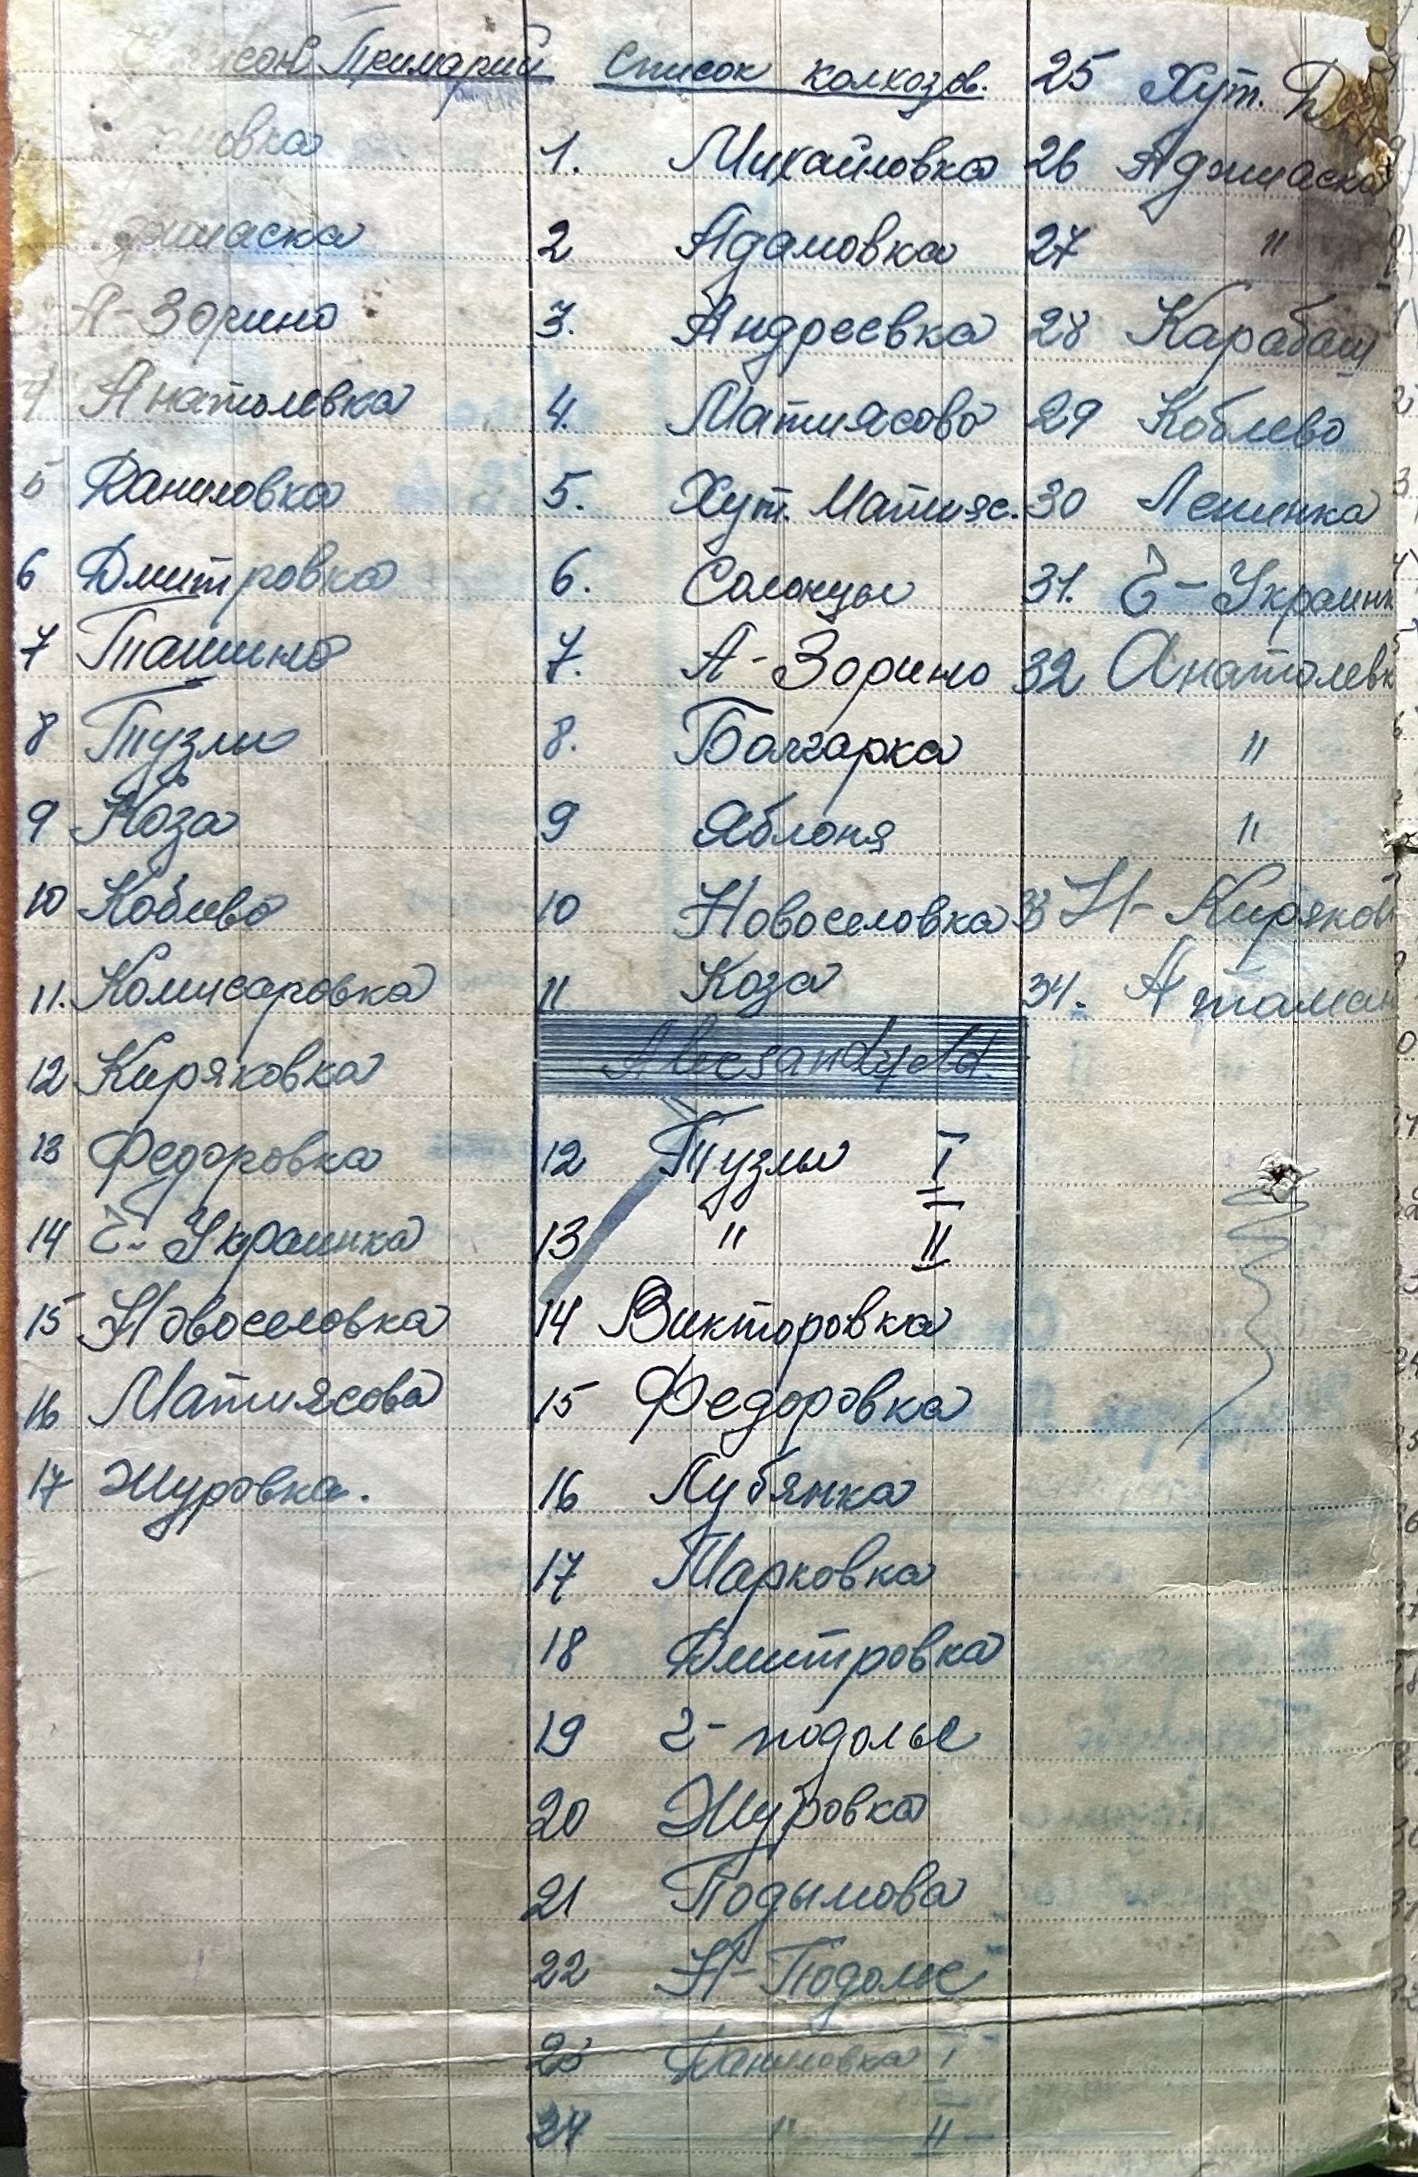 Примарий
4 Анатолевка
А-Зорино
5 Даниловка
6 Дмитровка
7 Ташино
8 Тузли
9 Коза
10 Коблево
11. Комисаровка
12 Киряковка
13 Федоровка
14 Е-Украинка
15 Новоселовка
16 Матиясова
17 Журовка.
Список колхозов.
1. Михайловка
2 Адамовка
3. Андреевка
4. Матиясово
5. Хут. Матияс.
6. Солонцы
7. А-Зорино
8. Болгарка
9 Яблоня
10 Новоселовка
11 Коза
12 Тузлы I
13 " II
14 Викторовка
15 Федоровка
16 Лубянка
17 Марковка
18 Дмитровка
19 2-подолье
20 Журовка
21 Подымова
22 Н-Подолье
23 Даниловка I
24 " II
25 Хут.
26 Аджиаска
27 "
28 Карабаш
29 Коблево
30 Лешинка
31. Е-Украинк
32 Анатолевк
"
"
33 Н-Киряков
34. Атаман